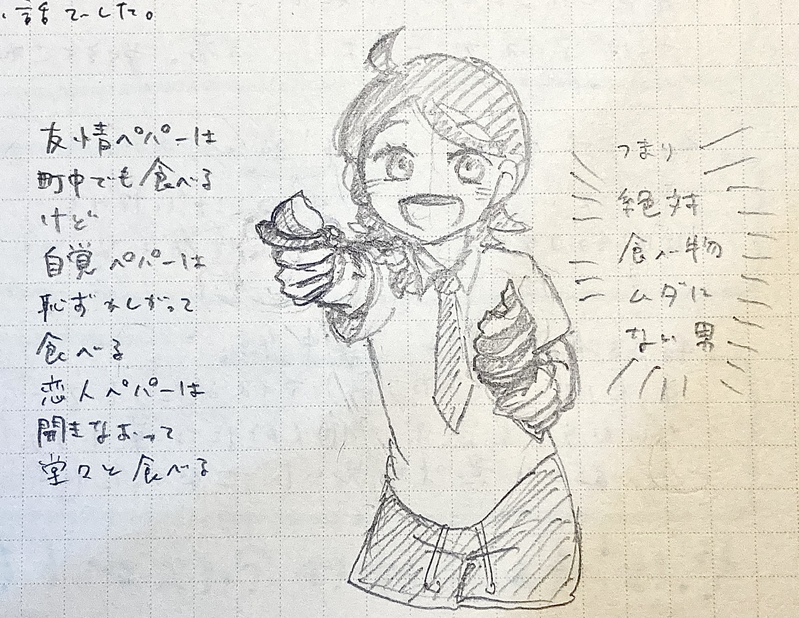 話でした。
友情ペパーは
町中でも食べる
けど
自覚ペパーは
恥ずかしがって
食べる
恋人ペパーは
開きなおって
堂々と食べる
つまり
絶対
食べ物
ムダに
ない男